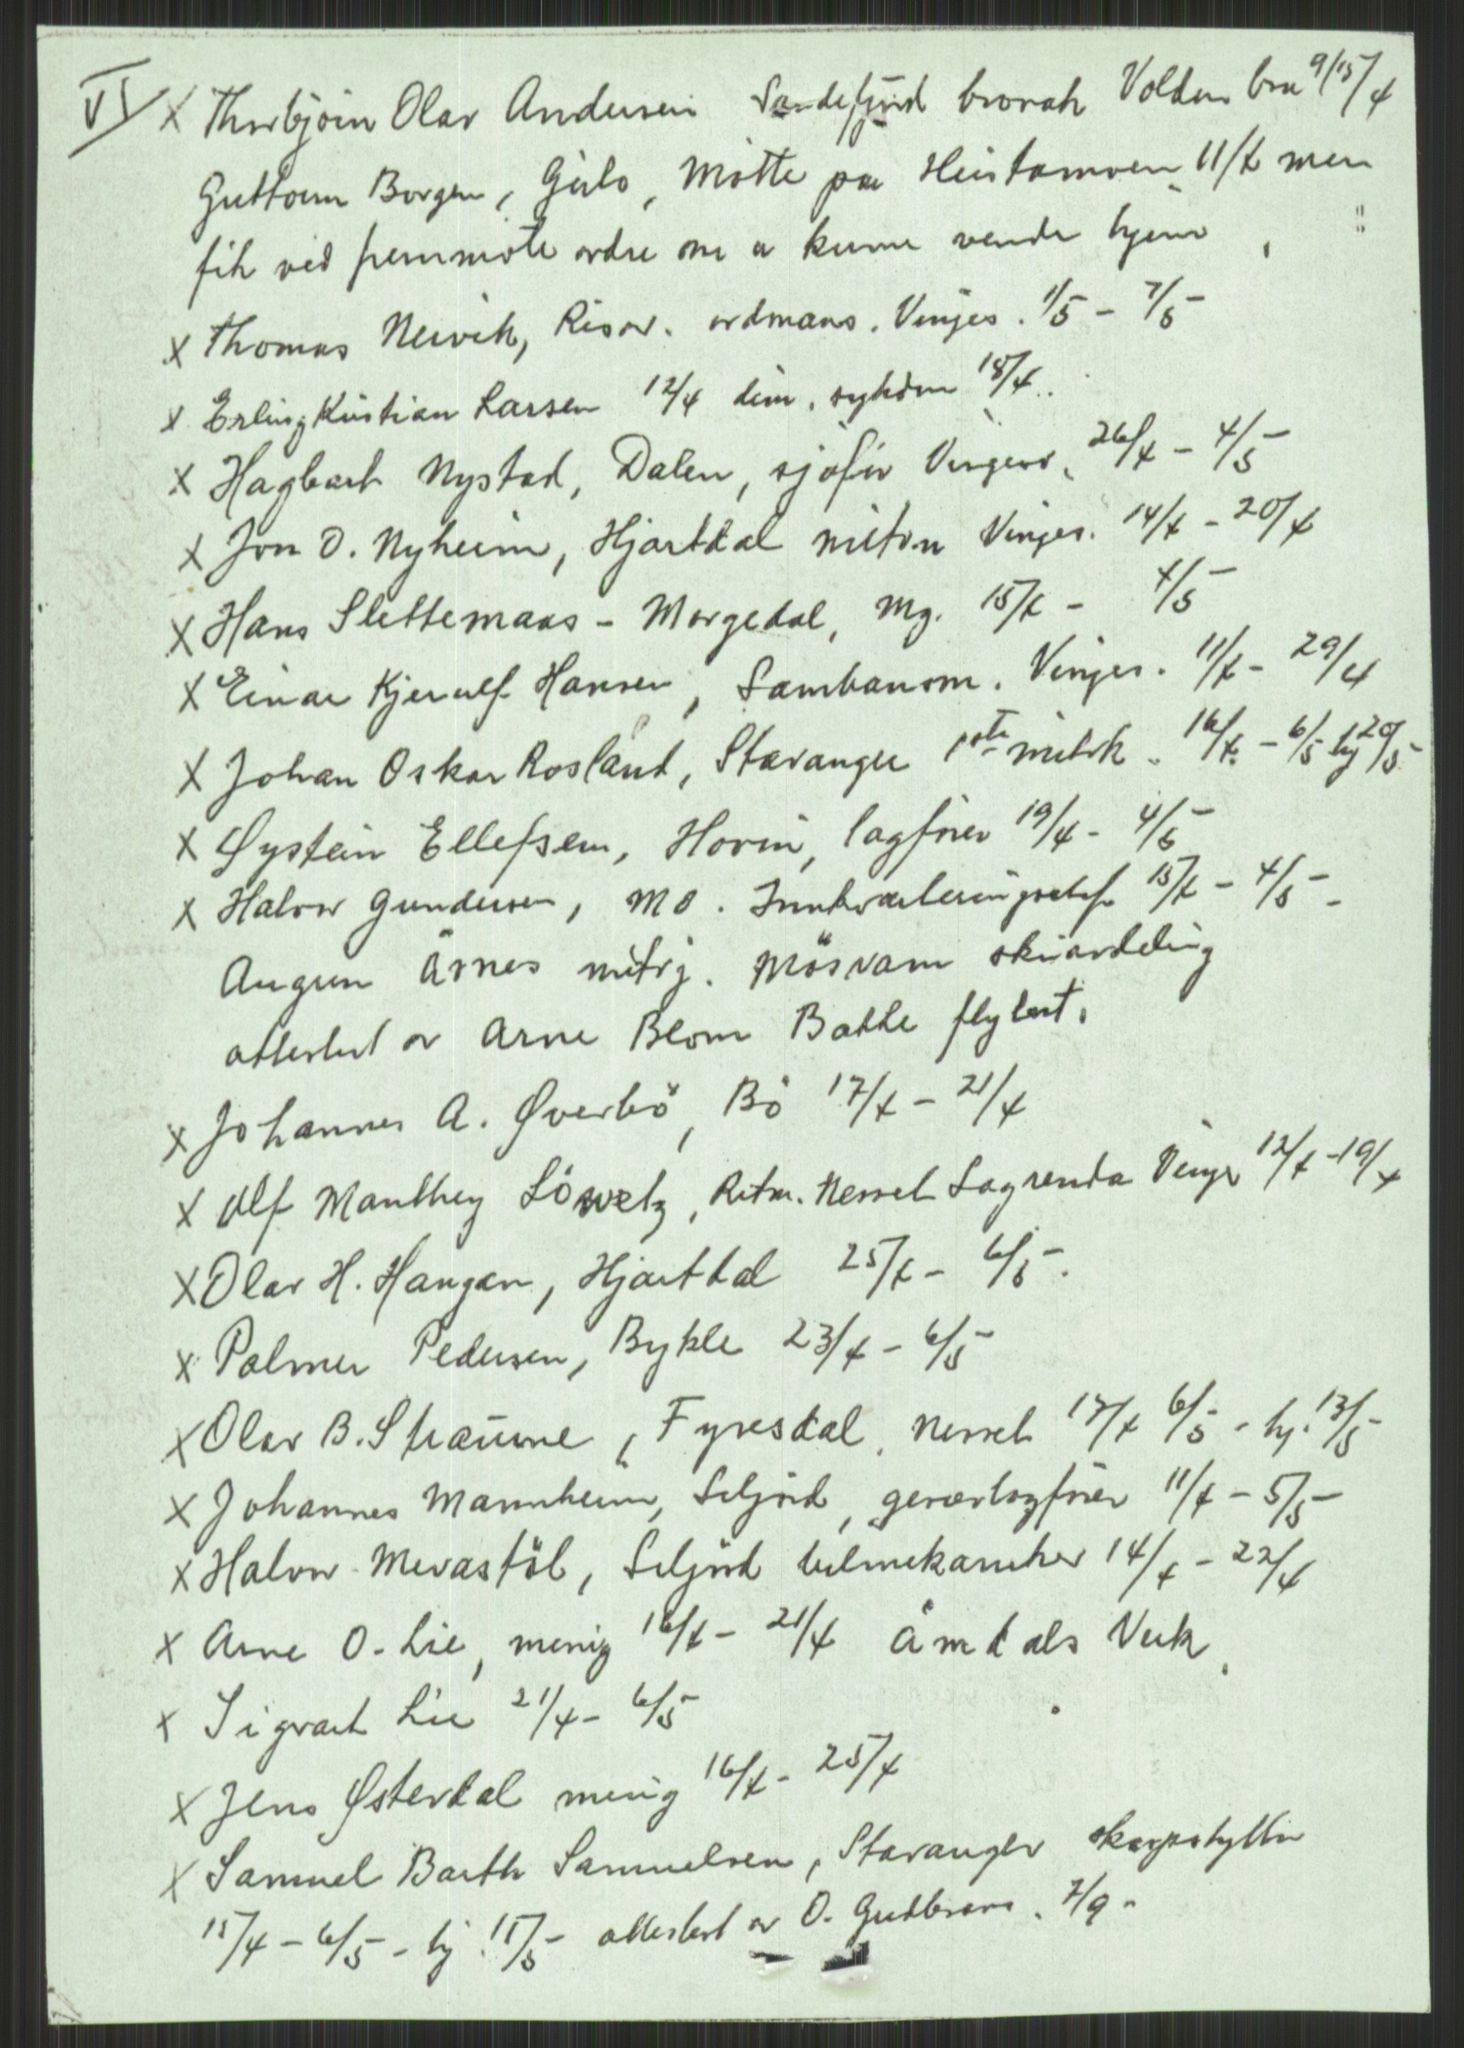 VI X Thorbjörn Olav Andersen Sandefjord Volden bru 9/15/4
Guttorm Borgen, Geilo, Møtte på Heistamoen 11/4 men
fik ved fremmøte ordre om a kunne vende hjem
X Thomas Nervik, Risør. ordonans. Vinjes. 1/5 - 7/5
X Erling Kristian Larsen 12/4 dim. sykdom 18/4.
X Hagbart Nystad, Dalen, sjåfør Vinjesv. 26/4 - 4/5
X Jon O. Nyheim, Hjartdal Vinjes. 14/4 - 20/4
X Hans Slettemaas - Morgedal, Mg. 15/4 - 4/5
X Einar Kjerulf Hansen, Sambansm. Vinjes. 11/4 - 29/4
X Johan Oskar Rosland, Stavanger 16/4 - 6/5 hj 20/5
X Øystein Ellefsen, Hovin, lagfører 19/4 - 4/5
X Halvor Gundersen, Mo. Innkvarteringssjef 15/4 - 4/5 -
Augun Årnes mitrj. Mösvam skiavdeling
attestert av Arne Blom Bakke flyløit.
X Johannes A. Øverbö, Bö 17/4 - 21/4
X Alf Manthey Löwetz, Ritm. Nesset Sagrenda Vinje 12/4 - 19/4
X Olav H. Haugan, Hjartdal 25/4 - 6/5.
X Palmer Pedersen, Bykle 23/4 - 6/5
X Olav B. Straume, Fyresdal, Nesset 17/4 6/5 - hj. 13/5
X Johannes Mannheim, Seljord, geværlagfører 11/4 - 5/5
X Halvor Mevastöl, Seljord bilmekaniker 14/4 - 22/4
X Arne O. Lie, menig 16/4 - 21/4 Åmdals Verk.
X Sigvart Lie 21/4 - 6/5
X Jens Østerdal menig 16/4 - 25/4
X Samuel Barth Samuelsen, Stavanger skarpskytter
15/4 - 6/5 - hj. 15/5 attestert av O. Gudbrans. 7/9 -